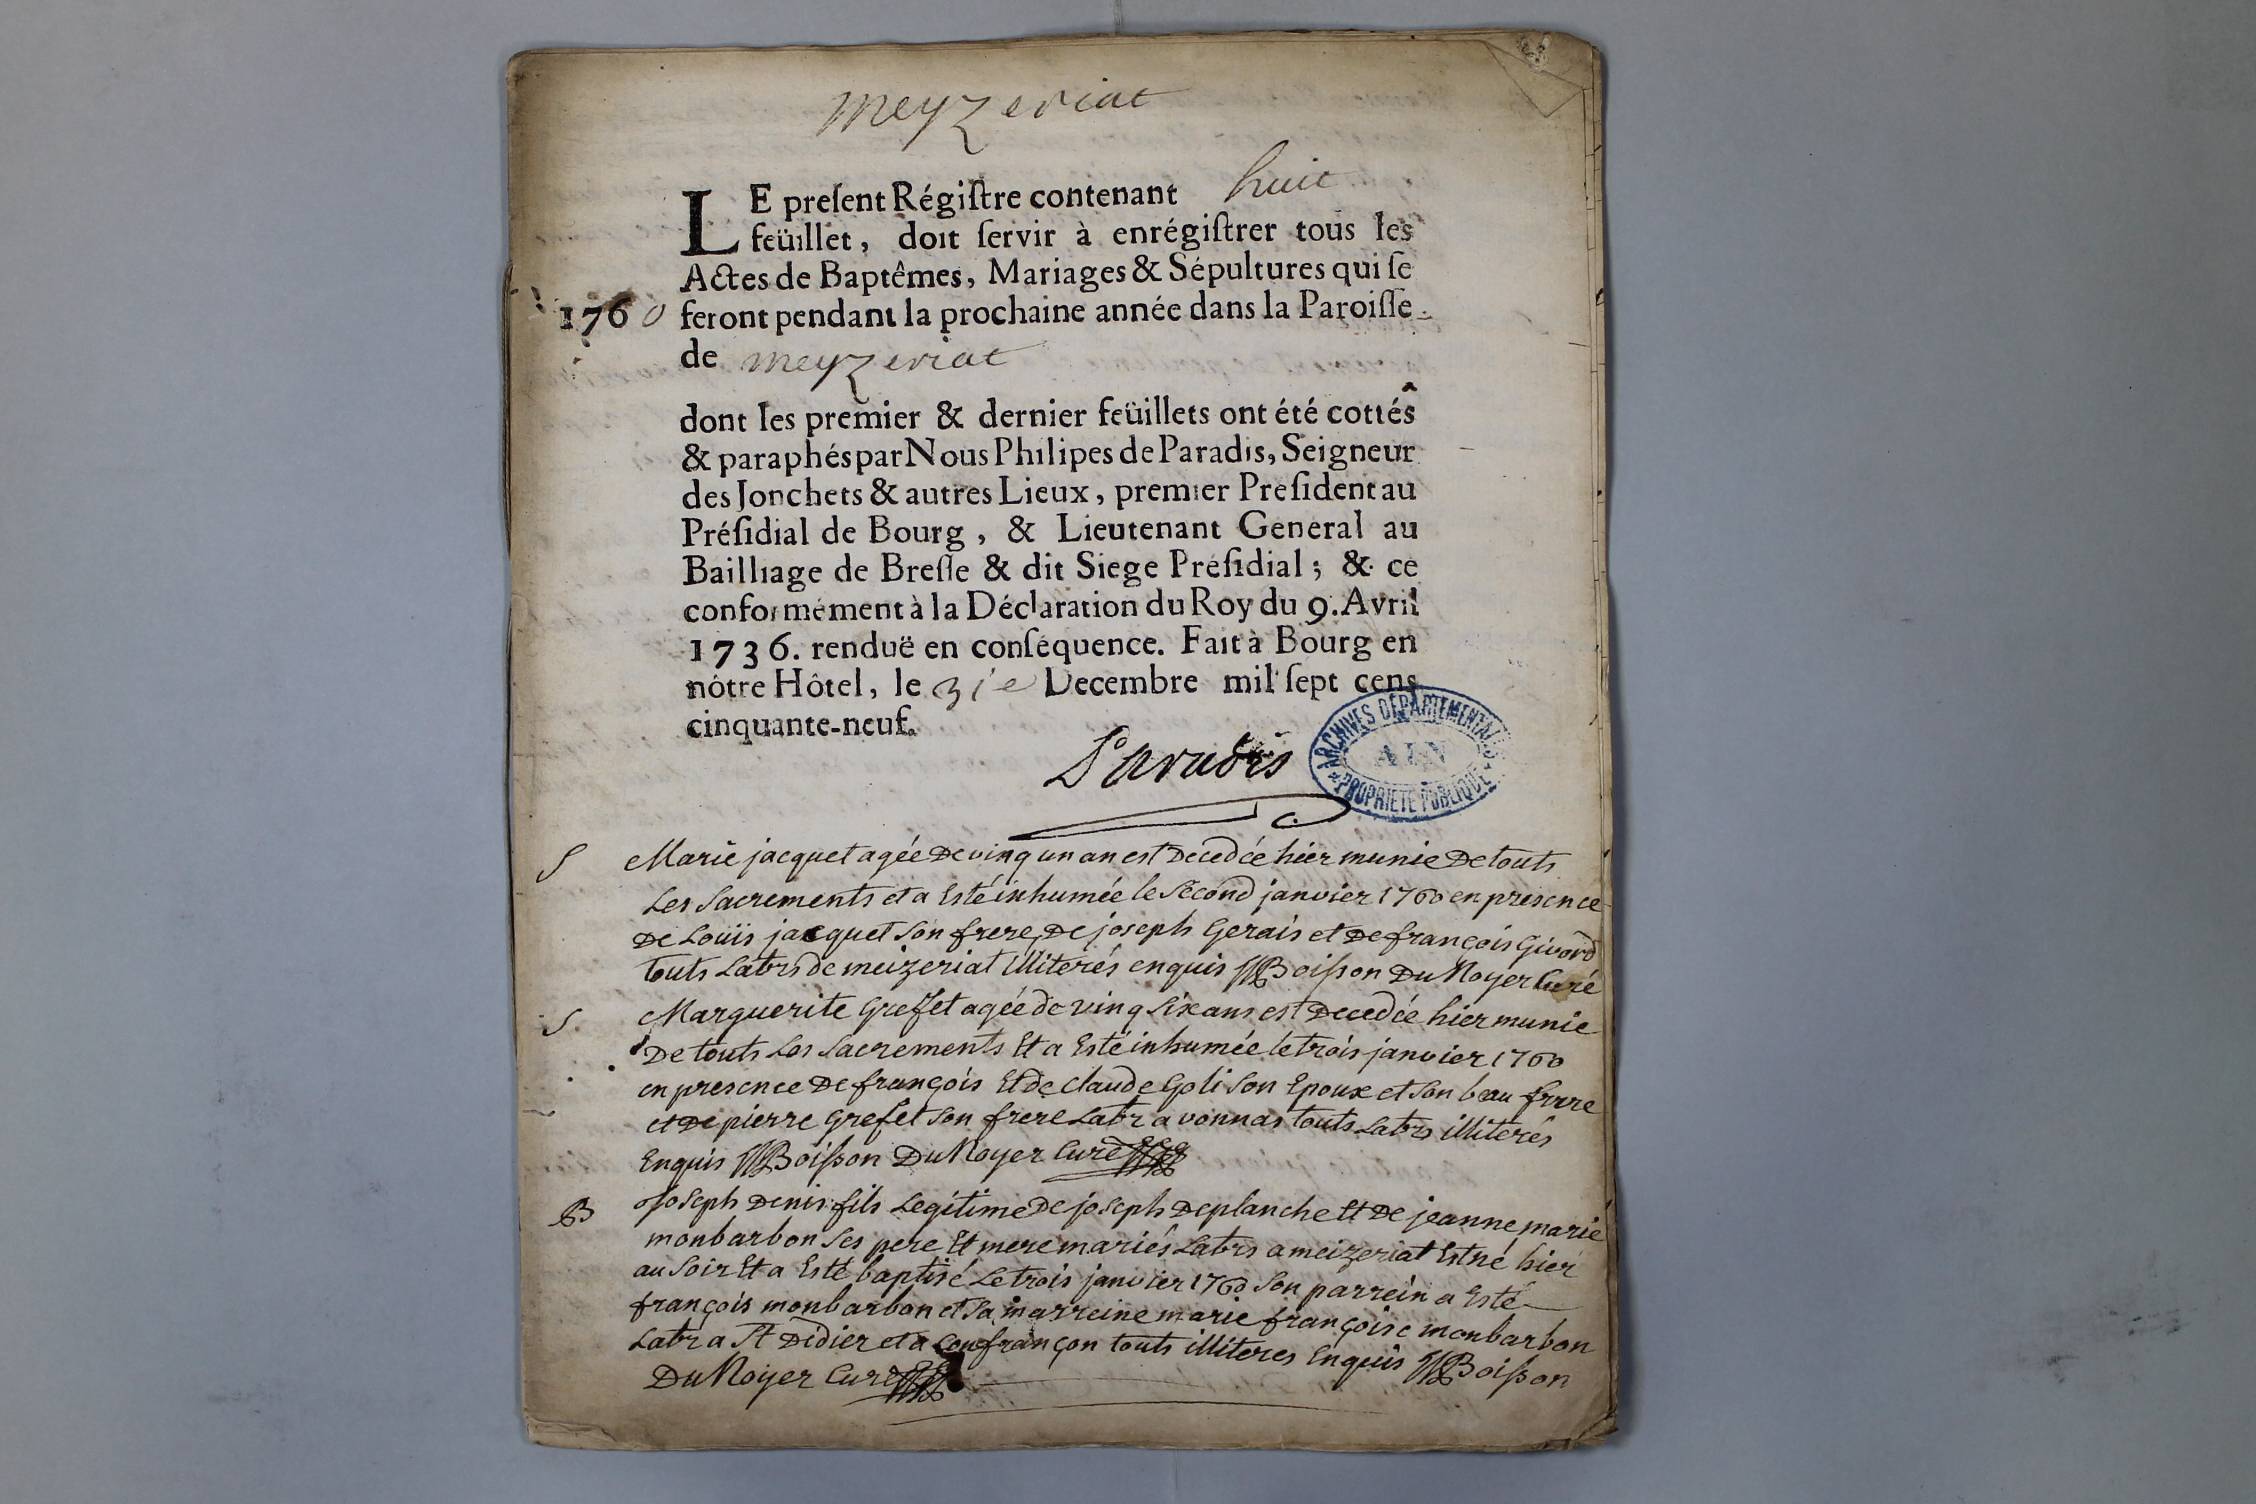 meyzeriat
LE preſent Régiſtre contenant huit
feüillet, doit ſervir à enrégiſtrer tous les
Actes de Baptêmes, Mariages & Sépultures qui ſe
1760 feront pendant la prochaine année dans la Paroiſſe
de meyzeriat
dont les premier & dernier feüillets ont été cottés
& paraphés par Nous Philipes de Paradis, Seigneur
des Jonchets & autres Lieux, premier Preſident au
Préſidial de Bourg, & Lieutenant General au
Bailliage de Breſſe & dit Siege Préſidial; & ce
conformément à la Déclaration du Roy du 9. Avril
1736. renduë en conſéquence. Fait à Bourg en
nôtre Hôtel, le 31e Decembre mil ſept cens
cinquante-neuf.
Paradis
ARCHIVES DEPARTEMENTALES
AIN
PROPRIETE PUBLIQUE
S Marie jacquet agée de vinq un an est decedée hier munie de touts
Les Sacrements et a Esté inhumée le Second janvier 1760 en presence
de Louïs jacquet Son frere, de joseph Gerais et de françois Givord
touts Labrs de meizeriat illiterés enquis Boisson Du Noyer Curé
S. Marguerite Grefet agée de vinq Six ans est decedée hier munie
De touts Les Sacrements Et a Esté inhumée le trois janvier 1760
en presence de françois Et de Claude Goli Son Epoux et Son beau frere
et de pierre Grefet Son frere Labr a vonnas touts Labrs illiterés
Enquis Boisson Du Noyer Curé
B joseph denis fils Legitime de joseph deplanche Et de jeanne marie
monbarbon Ses pere Et mere mariés Labrs a meizeriat Est né hier
au Soir Et a Esté baptisé Le trois janvier 1760 Son parrein a Esté
françois monbarbon et Sa marreine marie françoise monbarbon
Labr a St Didier et a Confrançon touts illiteres Enquis Boisson
Du Noyer Curé